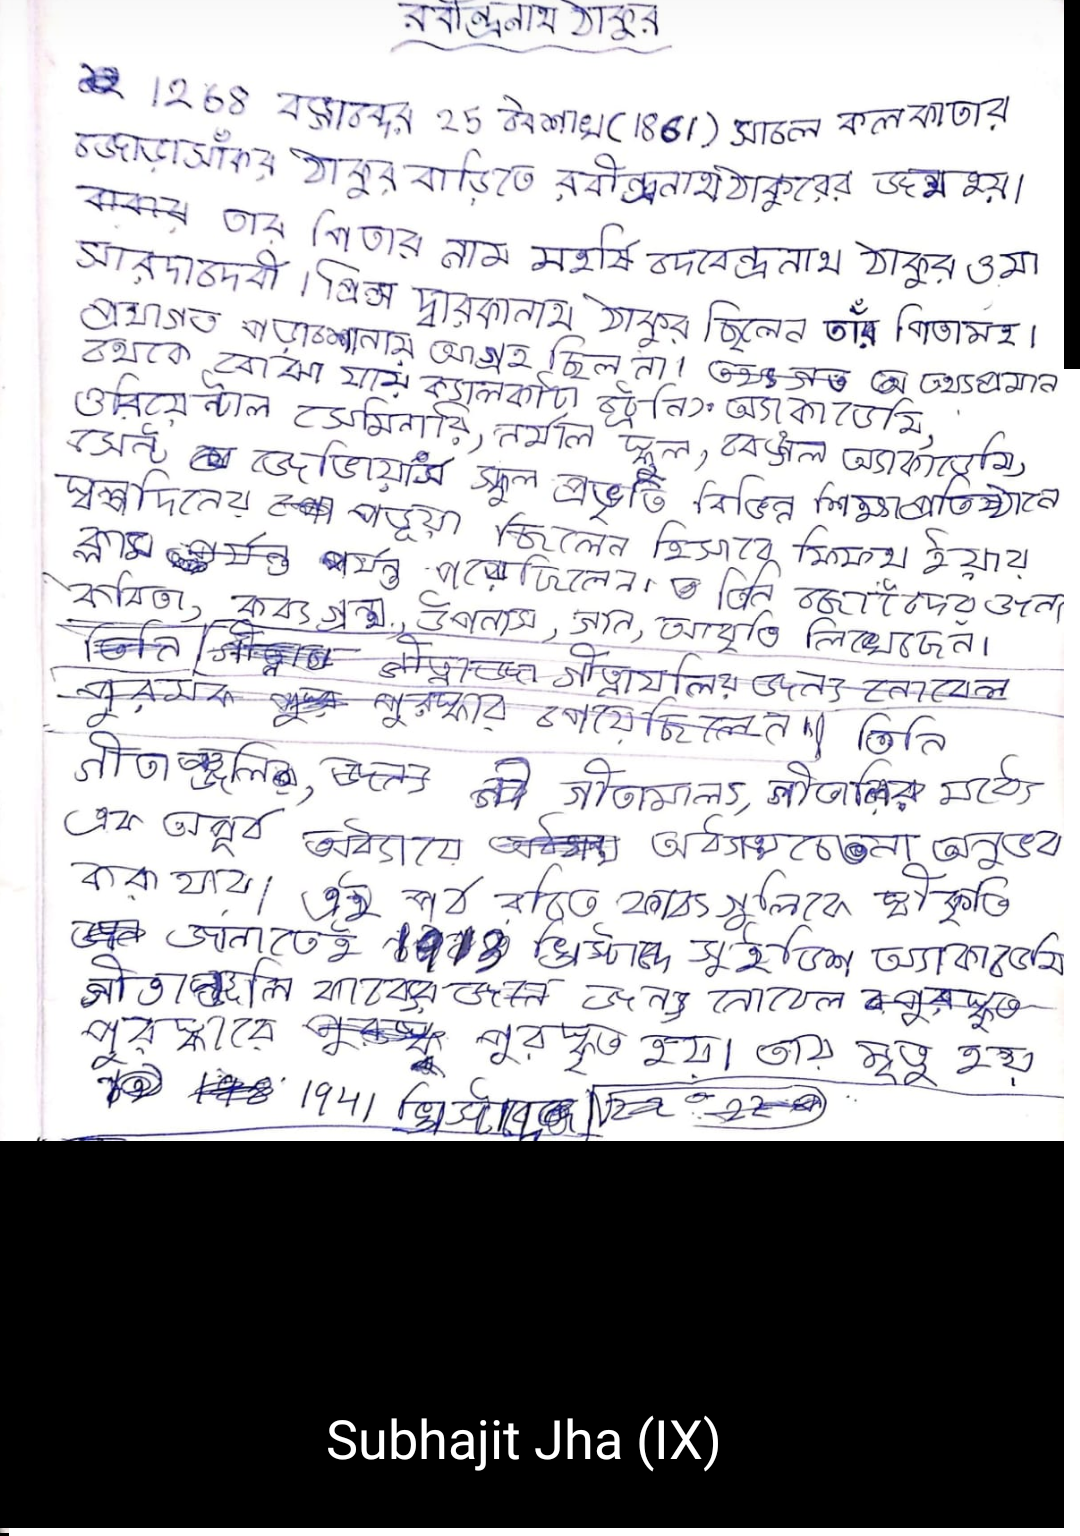 রবীন্দ্রনাথ ঠাকুর
1268 বঙ্গাব্দের 25 বৈশাখ (1861) সালে কলকাতার
জোড়াসাঁকর ঠাকুর বাড়িতে রবীন্দ্রনাথ ঠাকুরের জন্ম হয়।
তার পিতার নাম মহর্ষি দেবেন্দ্রনাথ ঠাকুর ও মা
সারদাদেবী। প্রিন্স দ্বারকানাথ ঠাকুর ছিলেন তাঁর পিতামহ।
প্রথাগত পড়াশোনায় আগ্রহ ছিল না। তথ্যপ্রমান
থেকে বোঝা যায় ক্যালকাটা ট্রেনিং অ্যাকাডেমি,
ওরিয়েন্টাল সেমিনারি, নর্মাল স্কুল, বেঙ্গল অ্যাকাডেমি,
সেন্ট জেভিয়ার্স স্কুল প্রভৃতি বিভিন্ন শিক্ষাপ্রতিষ্ঠানে
স্বল্পদিনের পড়ুয়া ছিলেন হিসাবে ফিফথ ইয়ার
ক্লাস পর্যন্ত তিনি ছোটদের জন্য
কবিতা, কাব্যগ্রন্থ, উপন্যাস, গান, আবৃতি লিখেছেন।
তিনি গীতাঞ্জলির জন্য নোবেল
পুরস্কার পেয়েছিলেন॥ তিনি
গীতাঞ্জলির, জন্য গীতামাল্য, গীতালির মধ্যে
এক অপূর্ব অনুভব
করা যায়। এই পর্ব রচিত কাব্যগুলিকে স্বীকৃতি
জানাতেই 1913 খ্রিস্টাব্দে সুইডিশ অ্যাকাডেমি
গীতাঞ্জলি কাব্যের জন্য নোবেল
পুরস্কারে পুরস্কৃত হয়। তার মৃত্যু হয়
1941 খ্রিস্টাব্দে
Subhajit Jha (IX)